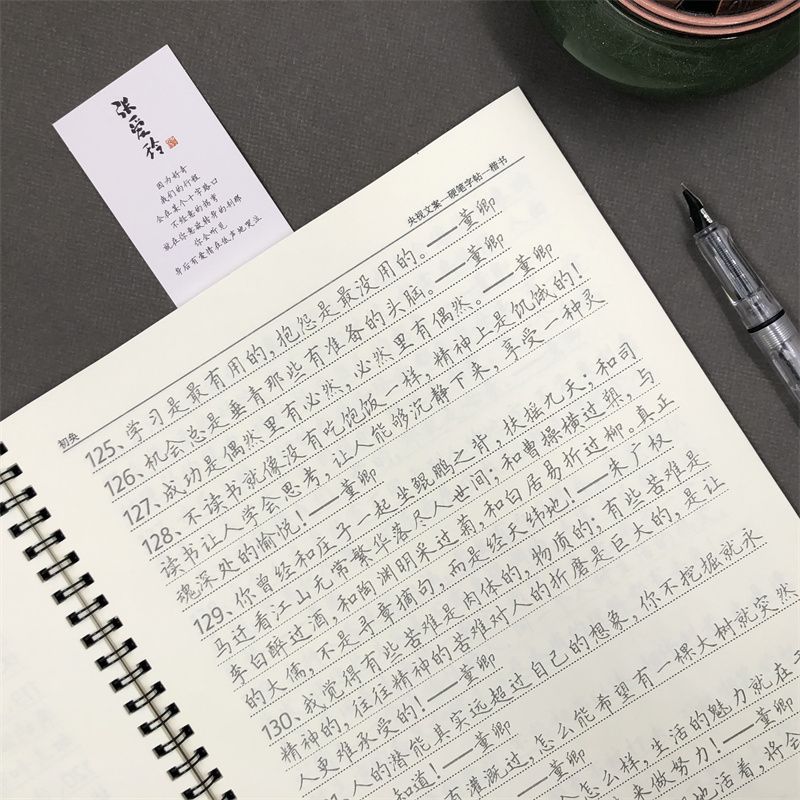 张爱玲
因为好奇
我们的行程
会在某个十字路口
不经意的拐弯
就在你意欲转身的刹那
你会听见
身后有爱情在低声地哭泣
央视文案—硬笔字帖—楷书
初奂
125、学习是最有用的，抱怨是最没用的。——董卿
126、机会总是垂青那些有准备的头脑。——董卿
127、成功是偶然里有必然，必然里有偶然。——董卿
128、不读书就像没有吃饱饭一样，精神上是饥饿的！
读书让人学会思考，让人能够沉静下来，享受一种灵
魂深处的愉悦！——董卿
129、你曾经和庄子一起坐鲲鹏之背，扶摇九天；和司
马迁看江山无常繁华落尽人世间；和曹操横过槊，与
李白醉过酒，和陶渊明采过菊，和白居易折过柳。真正
的大儒，不是寻章摘句，而是经天纬地！——朱广权
130、我觉得有些苦难是肉体的，物质的；有些苦难是
精神的，往往精神的苦难对人的折磨是巨大的，是让
人更难承受的！——董卿
人的潜能其实远超过自己的想象，你不挖掘就永
知道！——董卿
有灌溉过，怎么能希望有一棵大树就突然
——董卿
怎么样，生活的魅力就在于
来做努力！——董卿
地活着，将会